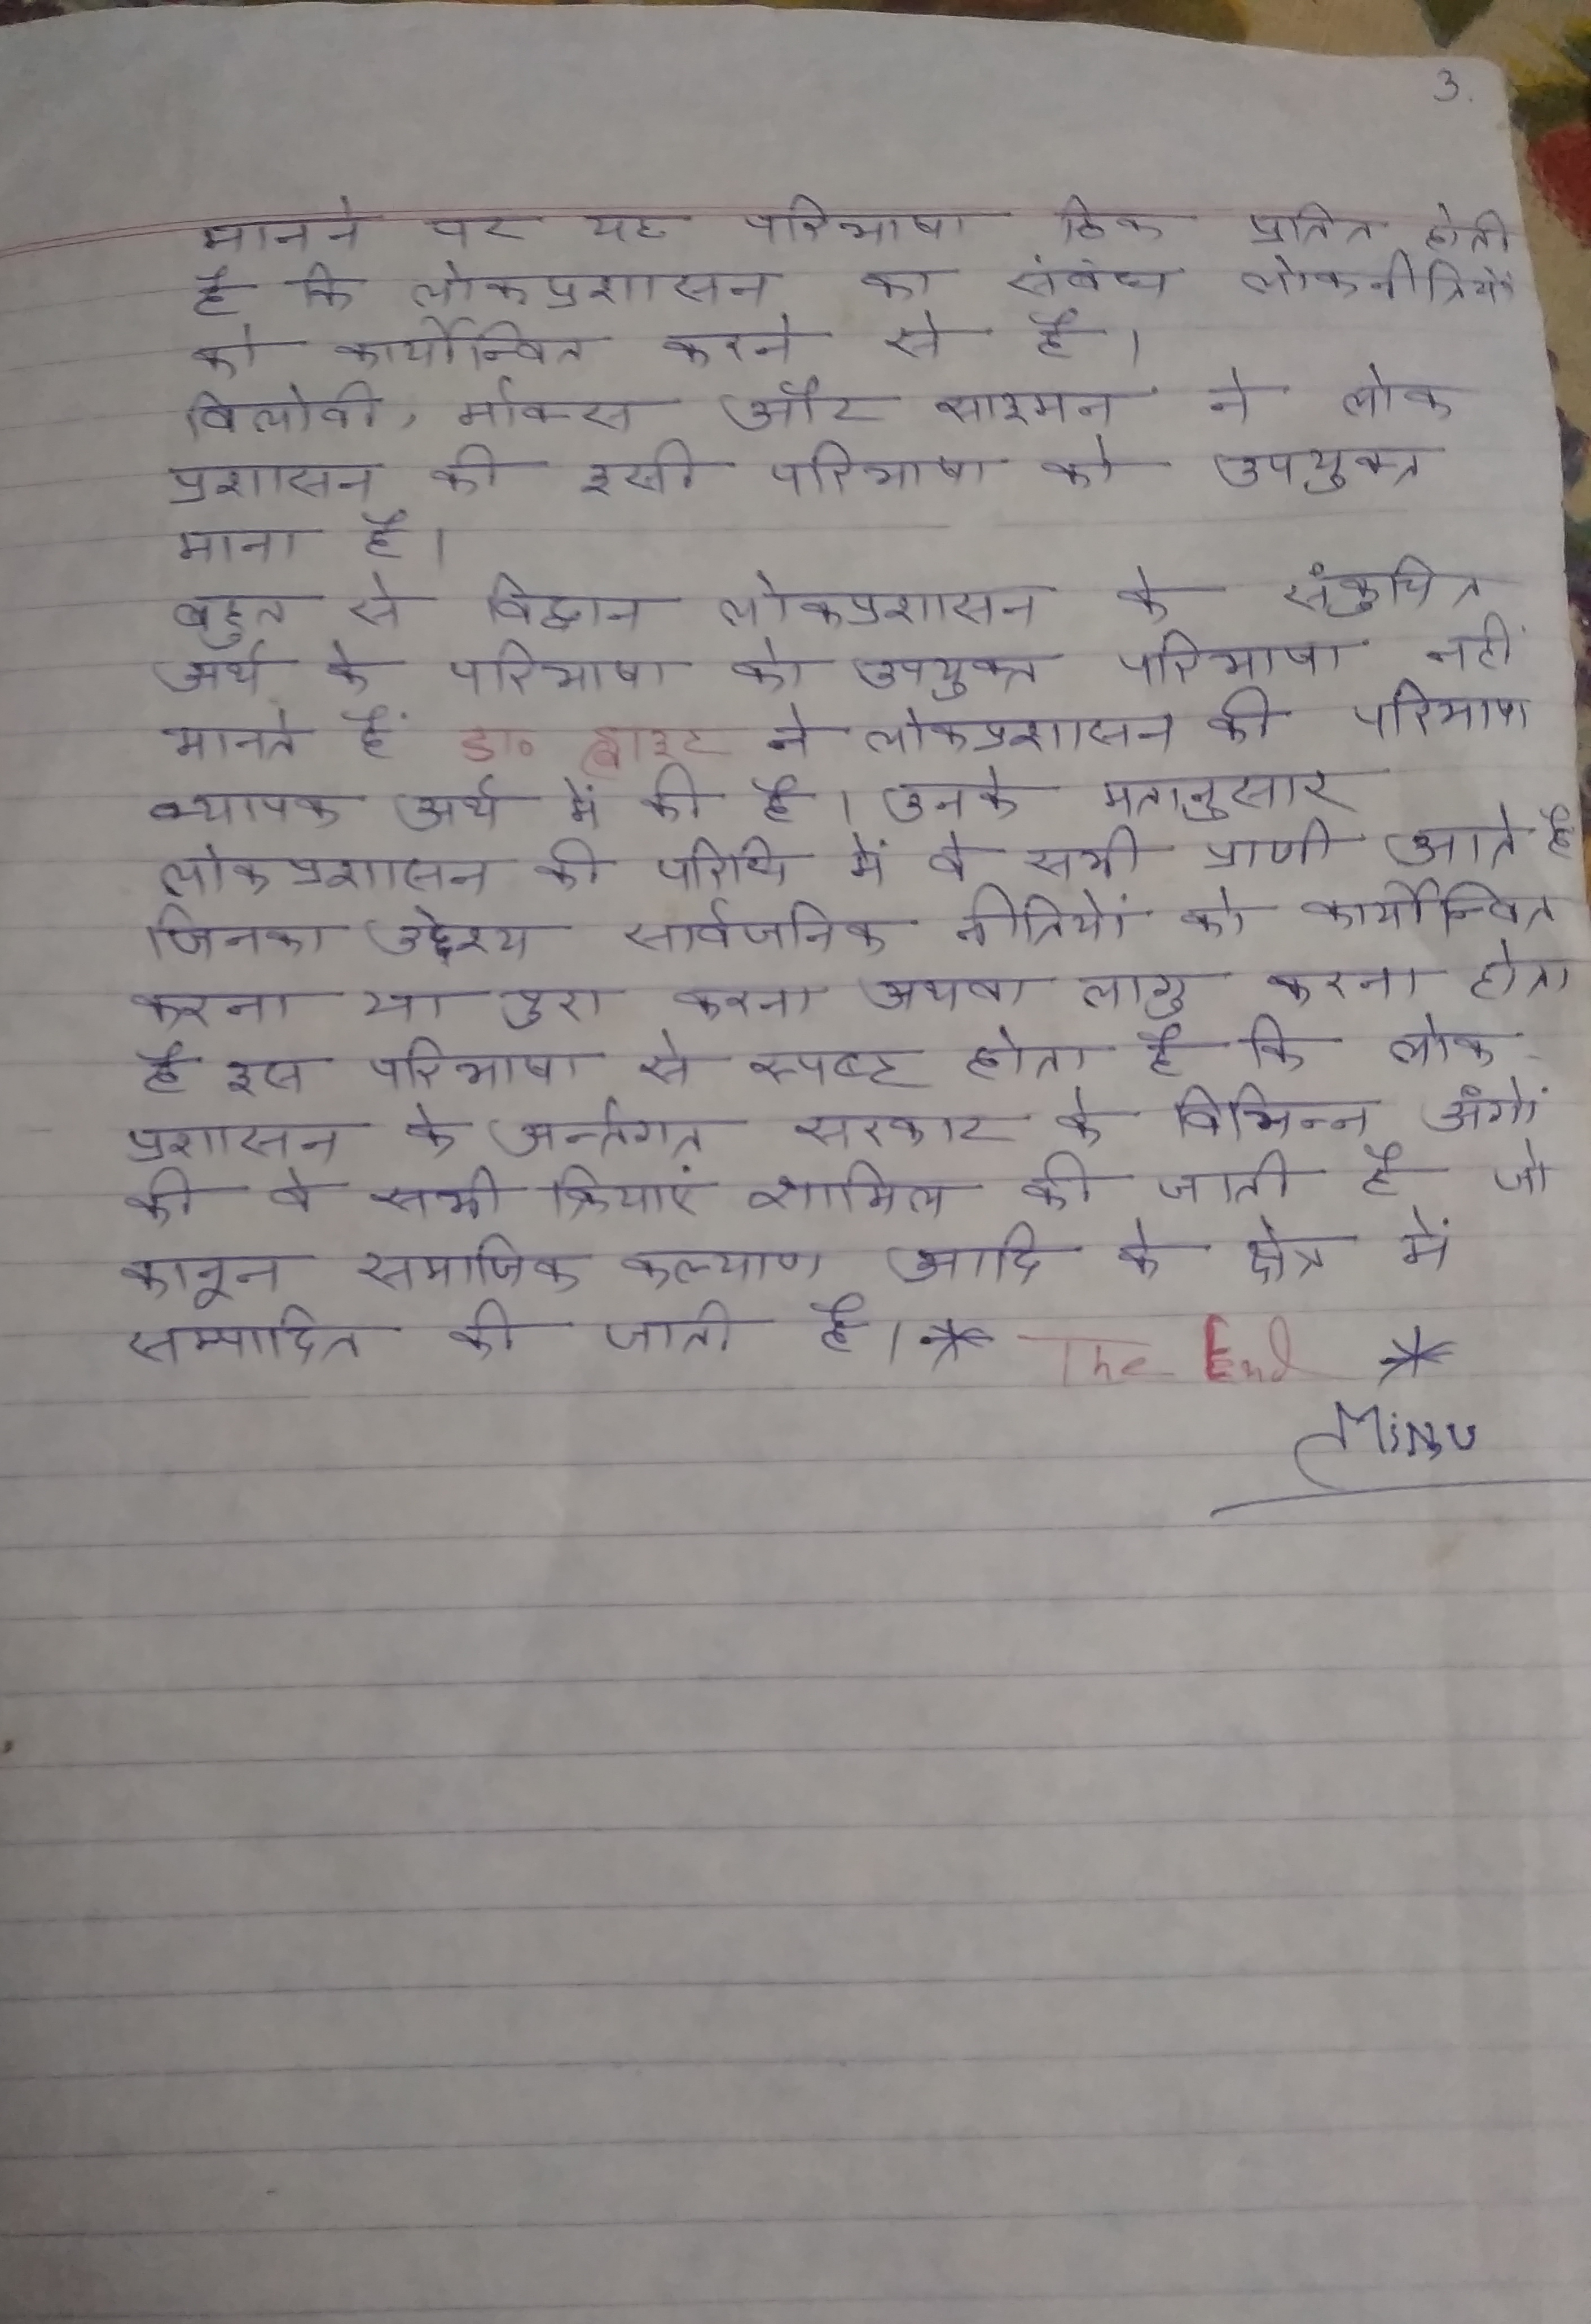 3.
मानने पर यह परिभाषा ठिक प्रतित होती
है कि लोकप्रशासन का संबंध लोकनीतियों
को कार्योन्वित करने से है।
विलोवी, र्माक्स और साइमन ने लोक
प्रशासन की इसी परिभाषा को उपयुक्त
माना है।
बहुत से विद्वान लोकप्रशासन के संकुचित
अर्थ के परिभाषा को उपयुक्त परिभाषा नहीं
मानते हैं डा० ह्वाइट ने लोकप्रशासन की परिभाषा
व्यापक अर्थ में की है। उनके मतानुसार
लोकप्रशासन की परिधि में वे सभी प्राणी आते है
जिनका उद्देश्य सार्वजनिक नीतियों को कार्योन्वित
करना या पुरा करना अथवा लागु करना होता
है इस परिभाषा से स्पष्ट होता है कि लोक-
प्रशासन के अर्न्तगत सरकार के विभिन्न अंगों
की वे सभी क्रियाएं शामिल की जाती है जो
कानून समाजिक कल्याण आदि के क्षेत्र में
सम्पादित की जाती है। * The End *